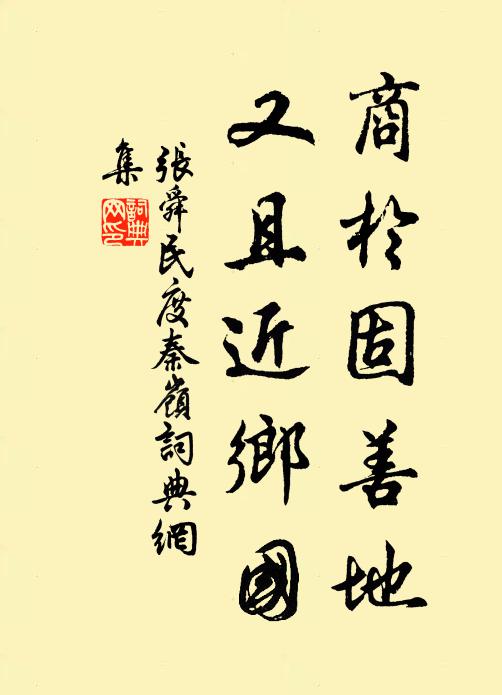 商於固善地
又且近鄉國
張舜民度秦嶺詞典網
集
詞典
网印